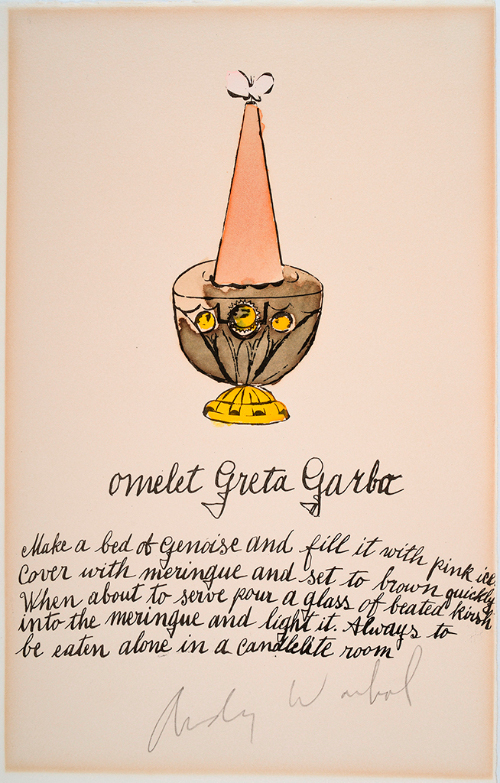 omelet Greta Garba
Make a bed of Genoise and fill it with pink ice
Cover with meringue and set to brown quickly
When about to serve pour a glass of beated Kirsh
into the meringue and light it. Always to
be eaten alone in a candlelite room
Andy Warhol